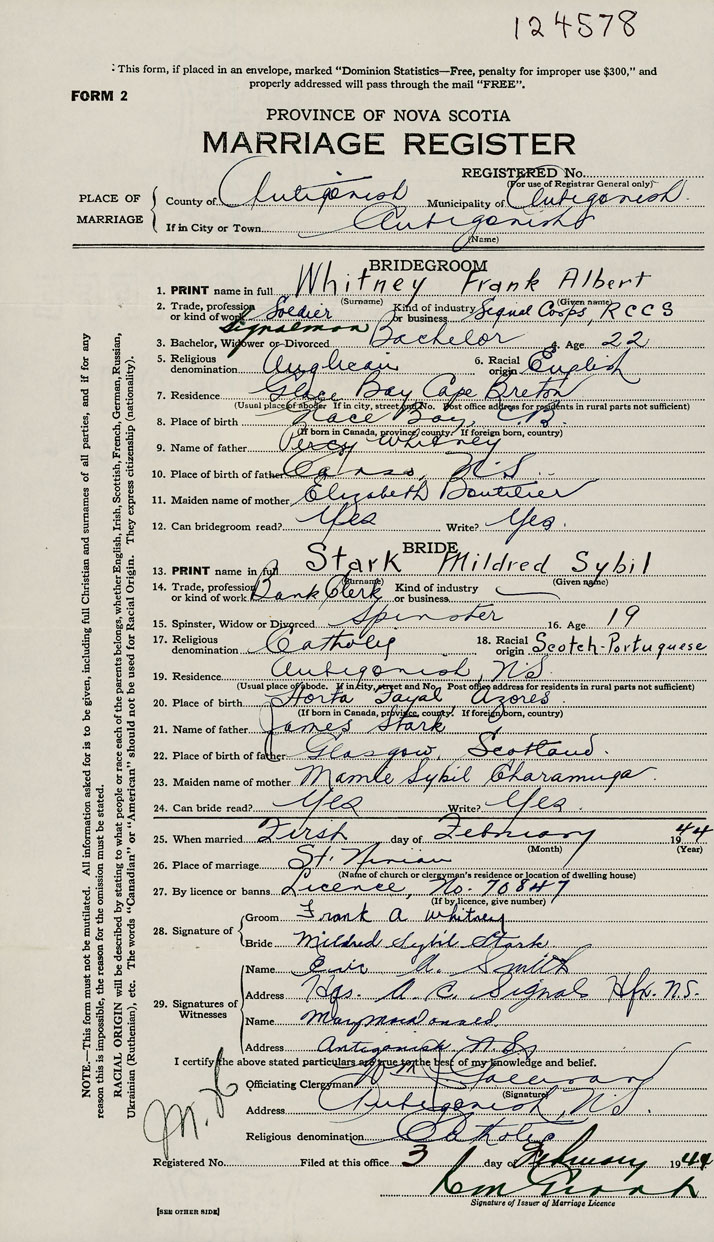 124578
: This form, if placed in an envelope, marked "Dominion Statistics—Free, penalty for improper use $300," and
properly addressed will pass through the mail "FREE".
FORM 2
PROVINCE OF NOVA SCOTIA
MARRIAGE REGISTER
REGISTERED No.
(For use of Registrar General only)
PLACE OF MARRIAGE
County of Antigonish Municipality of Antigonish.
If in City or Town Antigonish
(Name)
BRIDEGROOM
1. PRINT name in full Whitney Frank Albert
(Surname) (Given name)
2. Trade, profession or kind of work Soldier Kind of industry or business Signal Corps, RCCS
Signalman
3. Bachelor, Widower or Divorced Bachelor 4. Age 22
5. Religious denomination Anglican 6. Racial origin English
7. Residence Glace Bay Cape Breton
(Usual place of abode. If in city, street and No. Post office address for residents in rural parts not sufficient)
8. Place of birth Glace Bay, C.B.
(If born in Canada, province, county. If foreign born, country)
9. Name of father Percy Whitney
10. Place of birth of father Canso, N.S.
11. Maiden name of mother Elizabeth Boutilier
12. Can bridegroom read? Yes Write? Yes.
BRIDE
13. PRINT name in full Stark Mildred Sybil
(Surname) (Given name)
14. Trade, profession or kind of work Bank Clerk Kind of industry or business
15. Spinster, Widow or Divorced Spinster 16. Age 19
17. Religious denomination Catholic 18. Racial origin Scotch-Portuguese
19. Residence Antigonish, N.S.
(Usual place of abode. If in city, street and No. Post office address for residents in rural parts not sufficient)
20. Place of birth Horta Fayal Azores
(If born in Canada, province, county. If foreign born, country)
21. Name of father James Stark
22. Place of birth of father Glasgow, Scotland.
23. Maiden name of mother Mamie Sybil Charamuga
24. Can bride read? Yes Write? Yes.
25. When married First day of February 1944
(Month) (Year)
26. Place of marriage St. Ninian
(Name of church or clergyman's residence or location of dwelling house)
27. By licence or banns Licence, No. 70847
(If by licence, give number)
28. Signature of
Groom Frank A Whitney
Bride Mildred Sybil Stark
29. Signatures of Witnesses
Name Eric A. Smith
Address Hqs. A.C. Signals Hfx. N.S.
Name Mary Macdonald
Address Antigonish N.S.
I certify the above stated particulars are true to the best of my knowledge and belief.
Officiating Clergyman
(Signature)
Address Antigonish, N.S.
Religious denomination Catholic
Registered No. Filed at this office 3 day of February 1944
Signature of Issuer of Marriage Licence
[SEE OTHER SIDE]
NOTE.—This form must not be mutilated. All information asked for is to be given, including full Christian and surnames of all parties, and if for any
reason this is impossible, the reason for the omission must be stated.
RACIAL ORIGIN will be described by stating to what people or race each of the parents belongs, whether English, Irish, Scottish, French, German, Russian,
Ukrainian (Ruthenian), etc. The words "Canadian" or "American" should not be used for Racial Origin. They express citizenship (nationality).